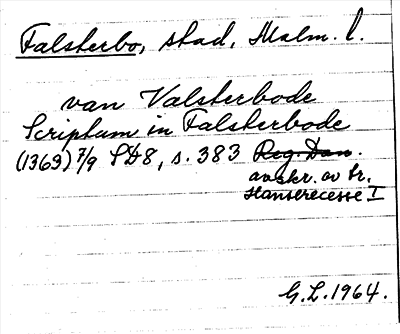 Falsterbo, stad, Malm. l.
van Valsterbode
Scriptum in Falsterbode
(1369) 7/9 SD8, s. 383 Reg. Dan.
avskr. av tr.
Hanserecesse I
G.L. 1964.